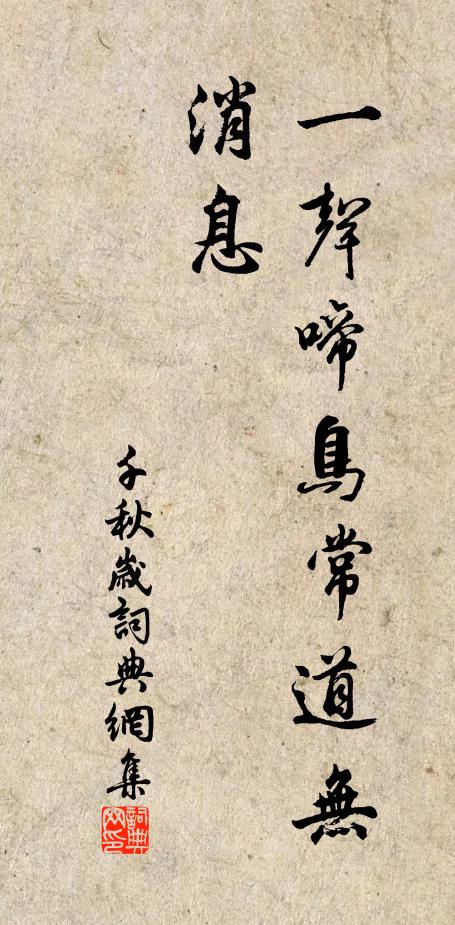 一聲啼鳥常道無
消息
千秋歲詞典網集
詞典網印